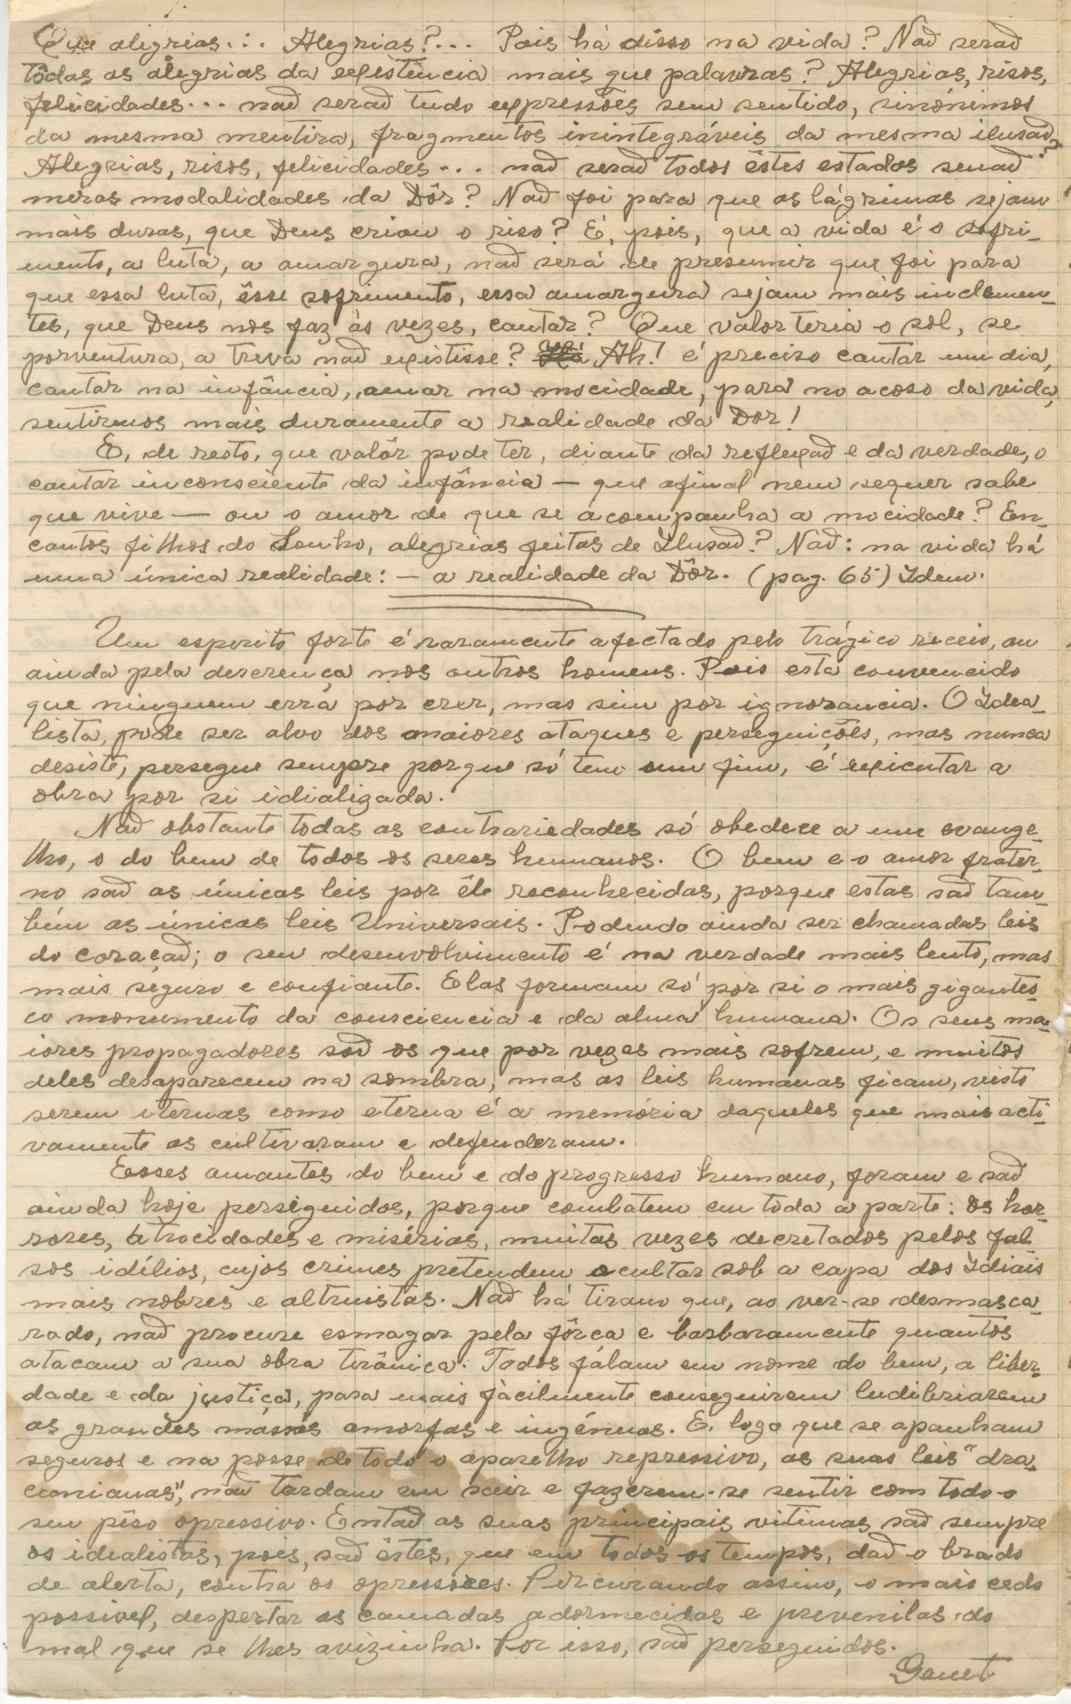 Que alegrias... Alegrias?... Pois há disso na vida? Naõ seraõ
tôdas as alegrias da existência mais que palavras? Alegrias, risos,
felicidades... naõ seraõ tudo expressões sem sentido, sinónimos
da mesma mentira, fragmentos inintegráveis da mesma ilusaõ?
Alegrias, risos, felicidades... naõ seraõ todos êstes estados senaõ
meras modalidades da Dôr? Naõ foi para que as lágrimas sejam
mais duras, que Deus criou o riso? E, pois, que a vida é o sofri-
mento, a luta, a amargura, naõ será de presumir que foi para
que essa luta, êsse sofrimento, essa amargura sejam mais inclemen-
tes, que Deus nos faz às vezes, cantar? Que valor teria o sol, se
porventura, a treva naõ existisse? Ah! é preciso cantar um dia,
cantar na infância, amar na mocidade, para no acaso da vida,
sentirmos mais duramente a realidade da Dor!
E, de resto, que valôr pode ter, diante da reflexaõ e da verdade, o
cantar inconsciente da infância — que afinal nem sequer sabe
que vive — ou o amor de que se acompanha a mocidade? En-
cantos filhos do Sonho, alegrias feitas de Ilusaõ? Naõ: na vida há
uma única realidade: — a realidade da Dôr. (pag. 65) Idem.
Um espirito forte é raramente afectado pelo trágico receio, ou
ainda pela descrença nos outros homens. Pois está convencido
que ninguem erra por crer, mas sim por ignorancia. O Idea-
lista, pode ser alvo dos maiores ataques e perseguições, mas nunca
desiste, persegue sempre porque só tem um fim, é executar a
obra por si idializada.
Naõ obstante todas as contrariedades só obedece a um evange-
lho, o do bem de todos os seres humanos. O bem e o amor frater-
no saõ as únicas leis por êle reconhecidas, porque estas saõ tam-
bém as únicas leis Universais. Podendo ainda ser chamadas leis
do coraçaõ; o seu desenvolvimento é na verdade mais lento, mas
mais seguro e confiante. Elas formam só por si o mais gigantes-
co monumento da consciencia e da alma humana. Os seus ma-
iores propagadores saõ os que por vezes mais sofrem, e muitos
deles desaparecem na sombra, mas as leis humanas ficam, visto
serem iternas como eterna é a memória daqueles que mais acti-
vamente as cultivaram e defenderam.
Esses amantes do bem e do progresso humano, foram e saõ
ainda hoje perseguidos, porque combatem em toda a parte: os hor-
rores, atrocidades e misérias, muitas vezes decretados pelos fal-
sos idílios, cujos crimes pretendem ocultar sob a capa dos Idiais
mais nobres e altruistas. Naõ há tirano que, ao ver-se desmasca-
rado, naõ procure esmagar pela fôrca e barbaramente quantos
atacam a sua obra tirânica. Todos fálam em nome do bem, a liber-
dade e da justiça, para mais fàcilmente conseguirem ludibriarem
as grandes massas amorfas e ingénuas. E, logo que se apanham
seguros e na posse de todo o aparelho repressivo, as suas leis "dra-
conianas", naõ tardam em sair e fazerem-se sentir com todo o
seu pêso opressivo. Entaõ as suas principais vitimas saõ sempre
os idealistas, pois, saõ êstes, que em todos os tempos, daõ o brado
de alerta, contra os opressores. Pircurando assim, o mais cedo
possivel, despertar as camadas adormecidas e prevenilas do
mal que se lhes avizinha. Por isso, saõ perseguidos.